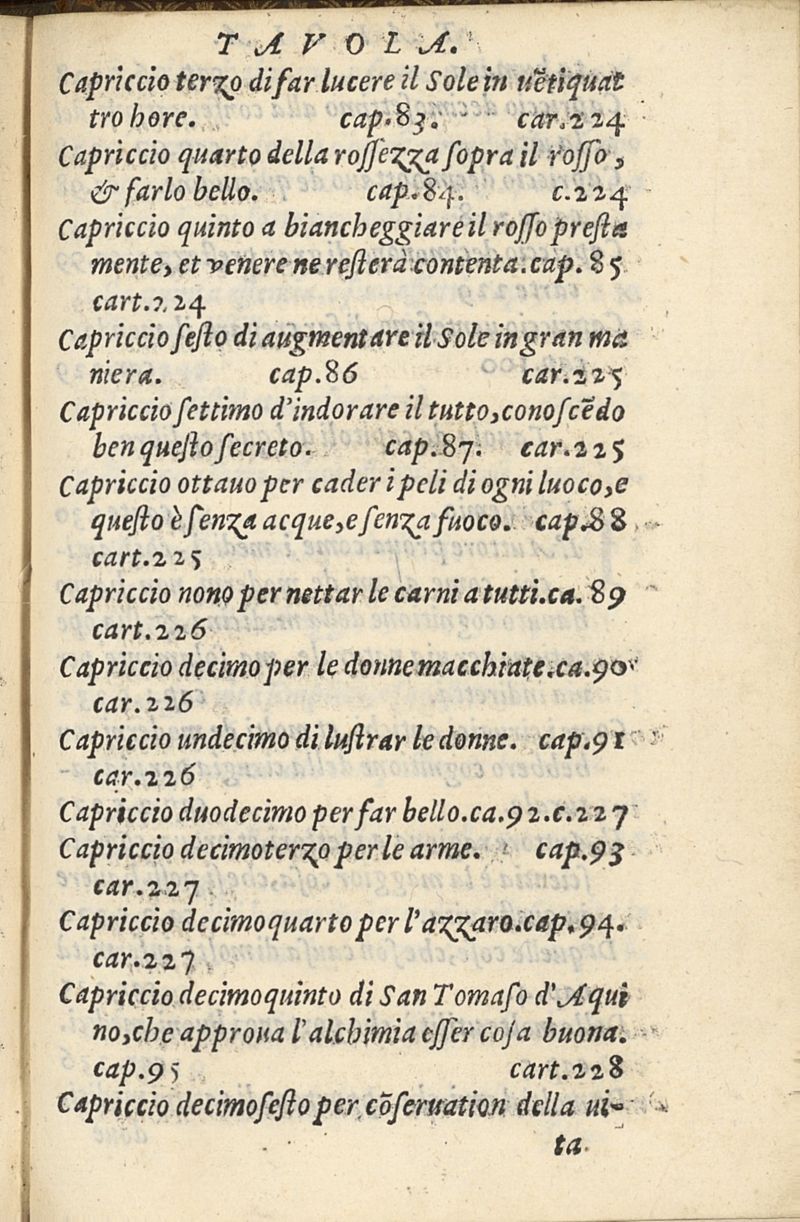 TAVOLA.
Capriccio terzo di far lucere il Sole in uētiquat
tro hore. cap.83. car.224
Capriccio quarto della roſſezza ſopra il roſſo,
& farlo bello. cap.84. c.224
Capriccio quinto a biancheggiare il roſſo preſta
mente, et venere ne reſterà contenta.cap. 85
cart.224
Capriccio ſeſto di augmentare il Sole in gran ma
niera. cap.86 car.225
Capriccio ſettimo d'indorare il tutto,conoſcēdo
ben queſto ſecreto. cap.87. car.225
Capriccio ottauo per cader i peli di ogni luoco,e
queſto è ſenza acque,e ſenza fuoco. cap.88
cart.225
Capriccio nono per nettar le carni a tutti.ca. 89
cart.226
Capriccio decimo per le donne macchiate.ca.90
car.226
Capriccio undecimo di luſtrar le donne. cap.91
car.226
Capriccio duodecimo per far bello.ca.92.c.227
Capriccio decimoterzo per le arme. cap.93
car.227
Capriccio decimoquarto per l'azzaro.cap.94.
car.227
Capriccio decimoquinto di San Tomaſo d'Aqui
no,che approua l'alchimia eſſer coſa buona.
cap.95 cart.228
Capriccio decimoſeſto per cōſeruation della ui-
ta